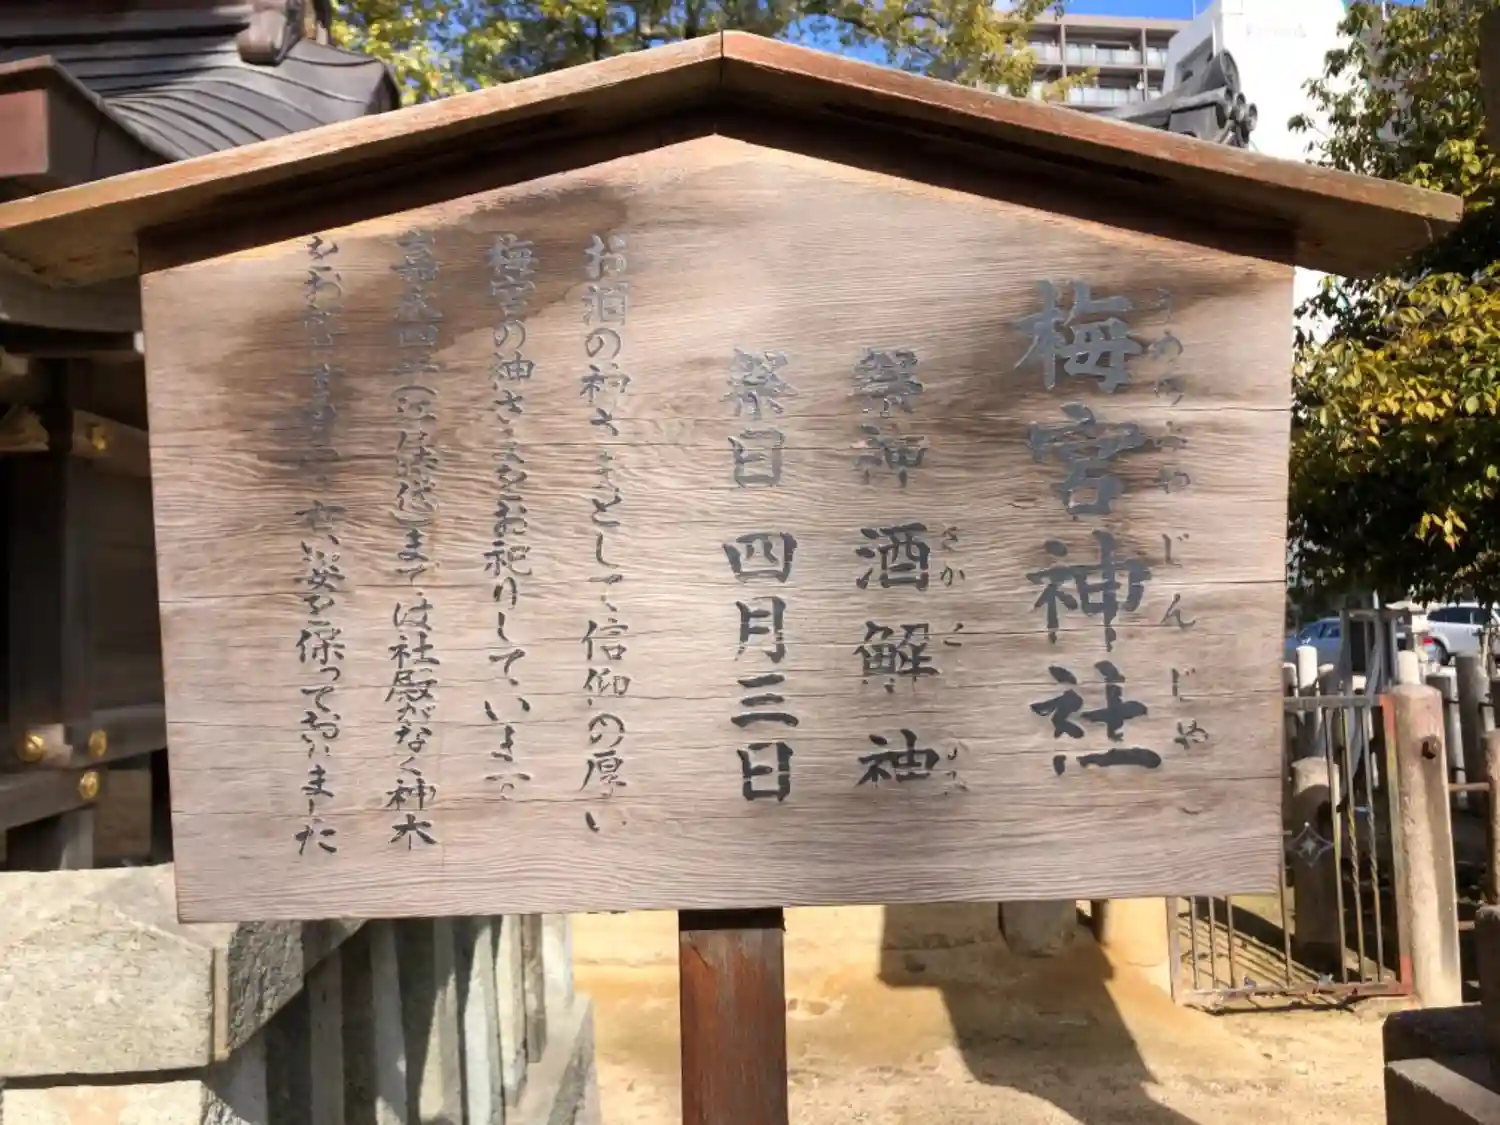 梅宮神社
うめのみやじんじゃ
祭神 酒解神
さかとけ
祭日 四月三日
お酒の神さまとして、信仰の厚い
梅宮の神さまをお祀りしています。
嘉永四年(江戸時代)まで、は社殿がなく神木
をお祀り 古い姿を保っておりました